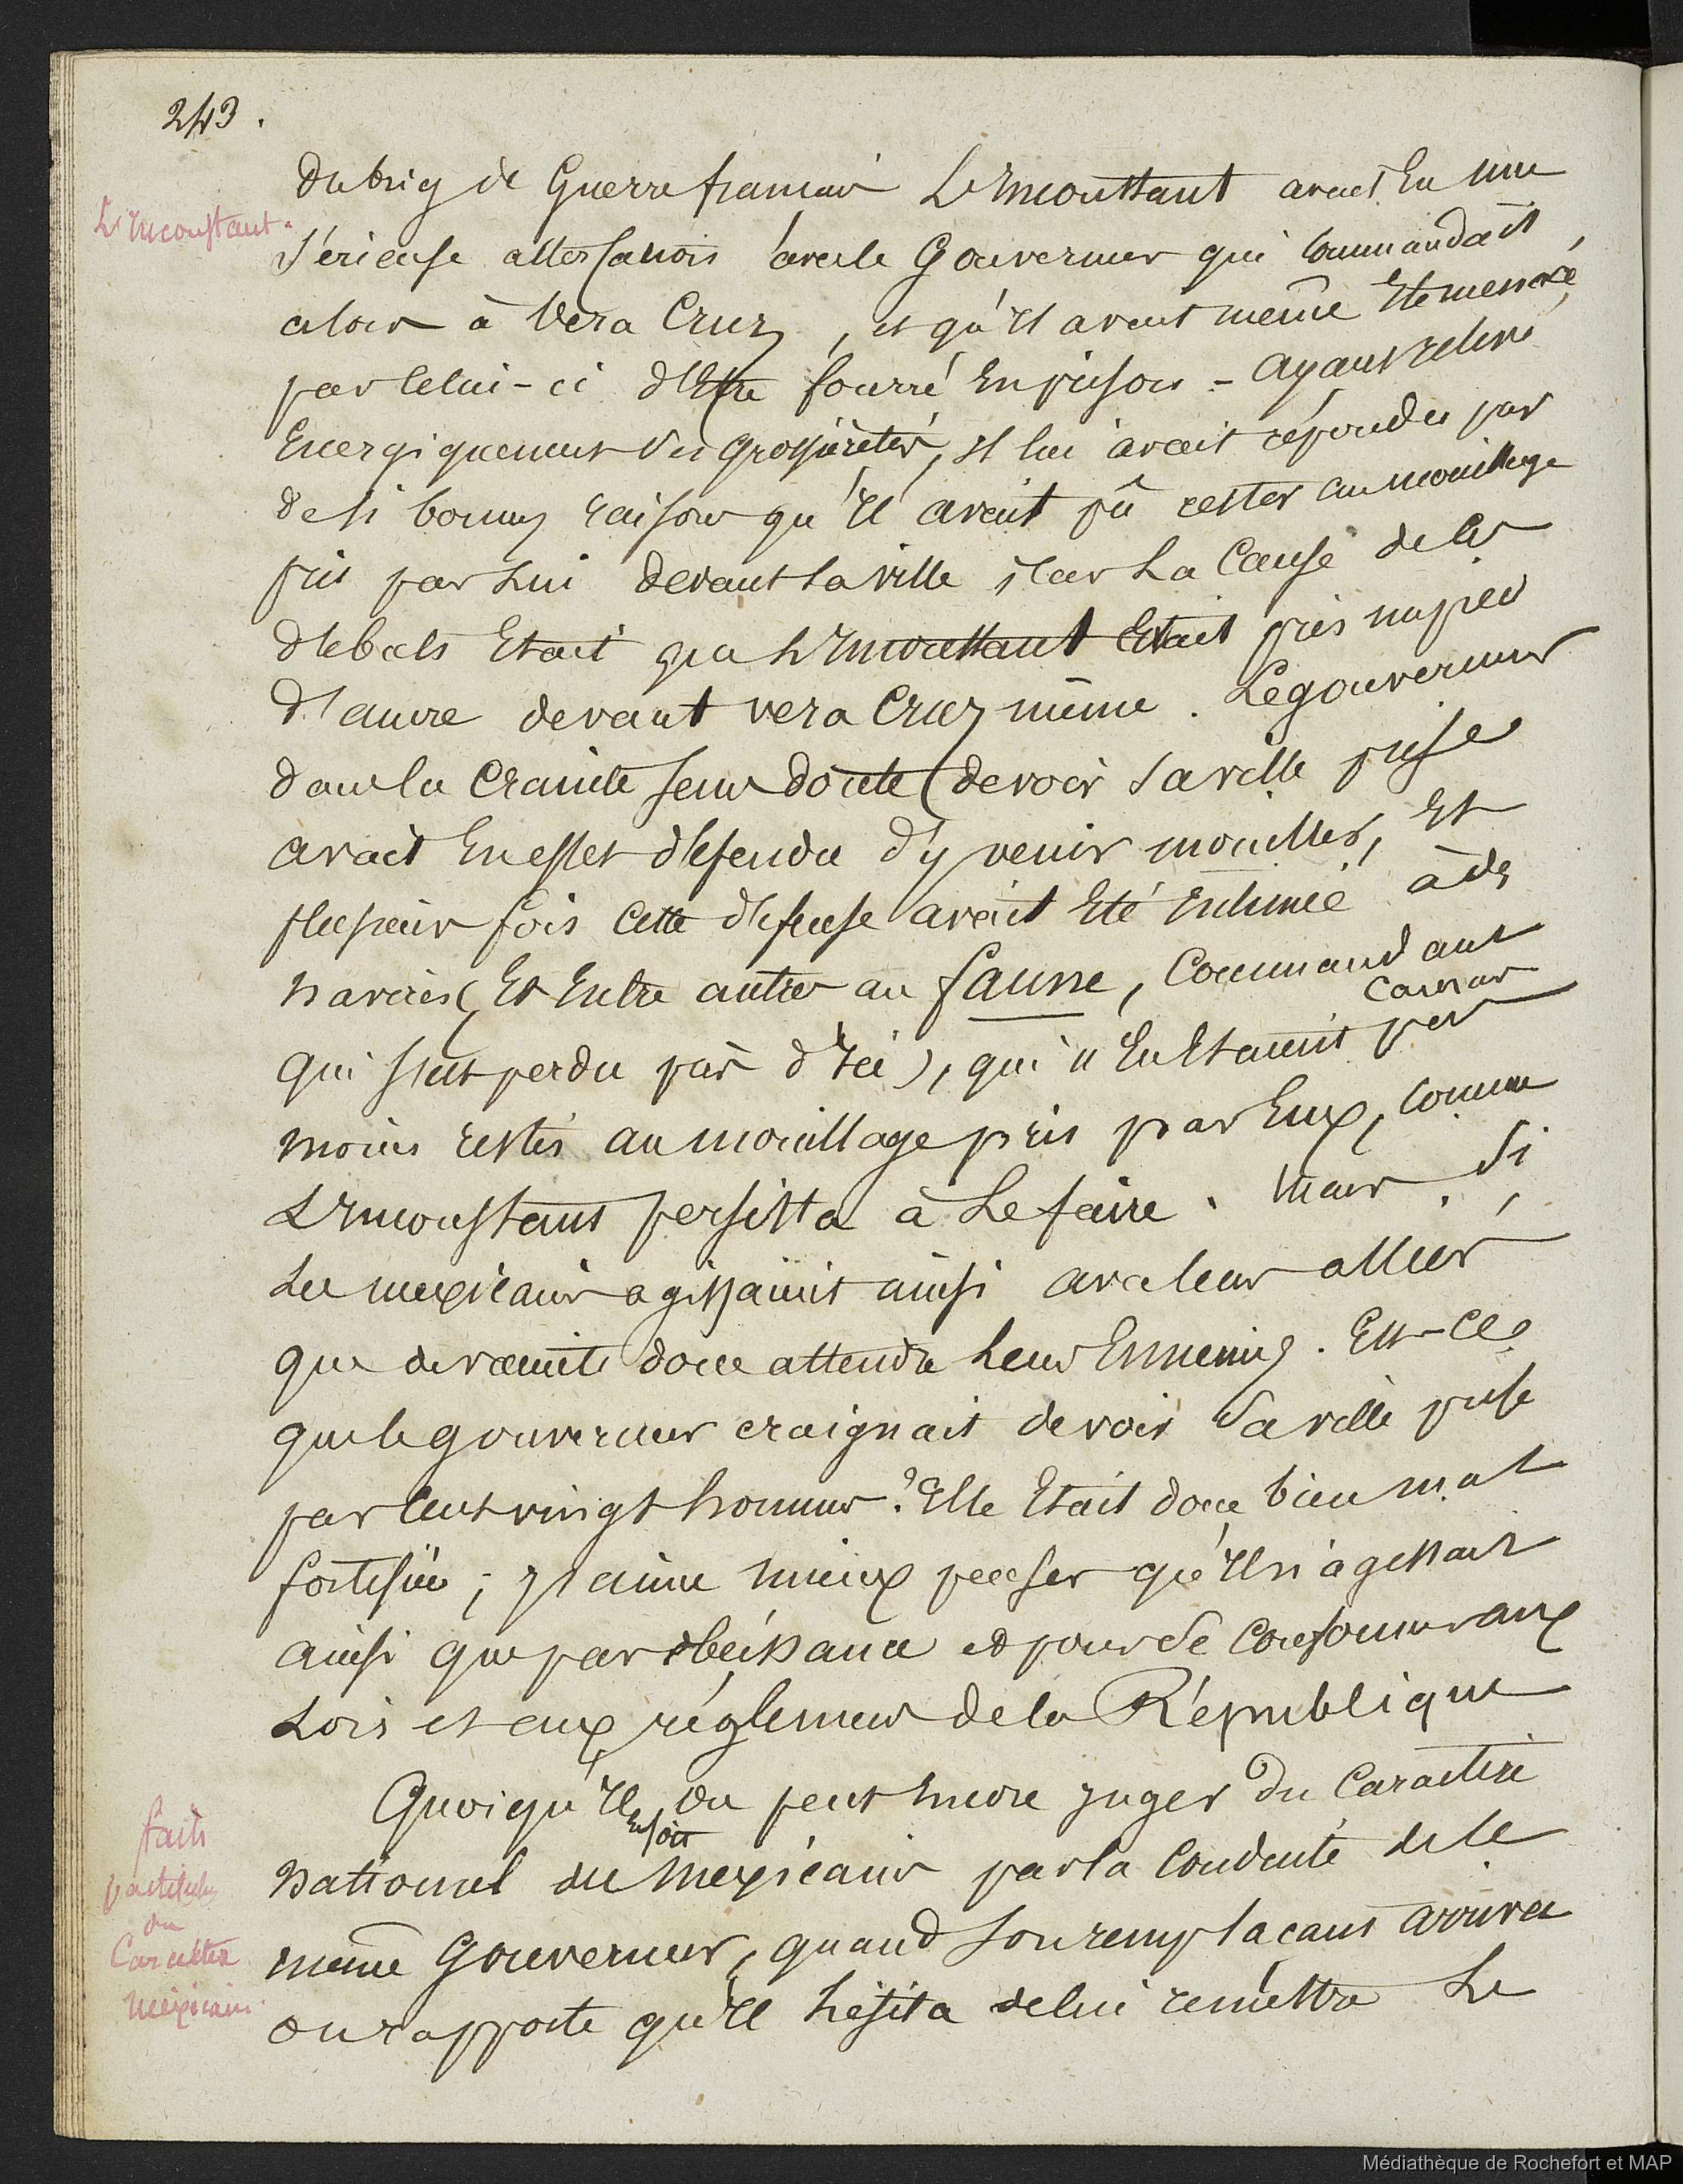 243.
L'Inconstant.
du brig de Guerre français L'Inconstant avait Eu une
Sérieuse altercation avec le Gouverneur qui Commandait
alors à Vera Cruz, et qu'Il avait même Eté menacé,
par Celui-ci d'Etre fourré En prison - ayant relevé
Energiquement Ses grossièretés, Il lui avait répondu par
de si bonnes raisons qu'Il avait pû rester au mouillage
pris par Lui devant la ville, car La Cause de Ces
débats Etait que L'Inconstant Etait près un peu
d'ancre devant vera Cruz même. Le gouverneur
dans la Crainte sans doute (de voir Sa ville prise
avait En effet défendu d'y venir mouiller, Et
plusieurs fois Cette défense avait Eté Intimée à des
navires (Et Entre autres au faune, Commandant
Cosmao
qui s'est perdu près d'Ici), qui n'En Etaient pas
moins restés au mouillage pris par Eux, Comme
L'Inconstant persista à Le faire. Mais Si,
Les mexicains agissaient ainsi avec leurs alliés
que devaient donc attendre Leurs Ennemis. Est-Ce
que le gouverneur craignait de voir Sa ville prise
par Cent vingt hommes? Elle Etait donc bien mal
fortifiée; J'aime mieux penser qu'Il n'agissait
ainsi que par obéissance et pour Se Conformer aux
Lois et aux règlemens de la République
Quoiqu'Il En soit On peut Encore Juger du Caractère
faits
particuliers
du
Caractère
Mexicain.
National des Mexicains par la Conduite de Ce
même Gouverneur, quand Son remplacant arriva
on rapporte qu'Il hésita de lui remettre Le
Médiathèque de Rochefort et MAP